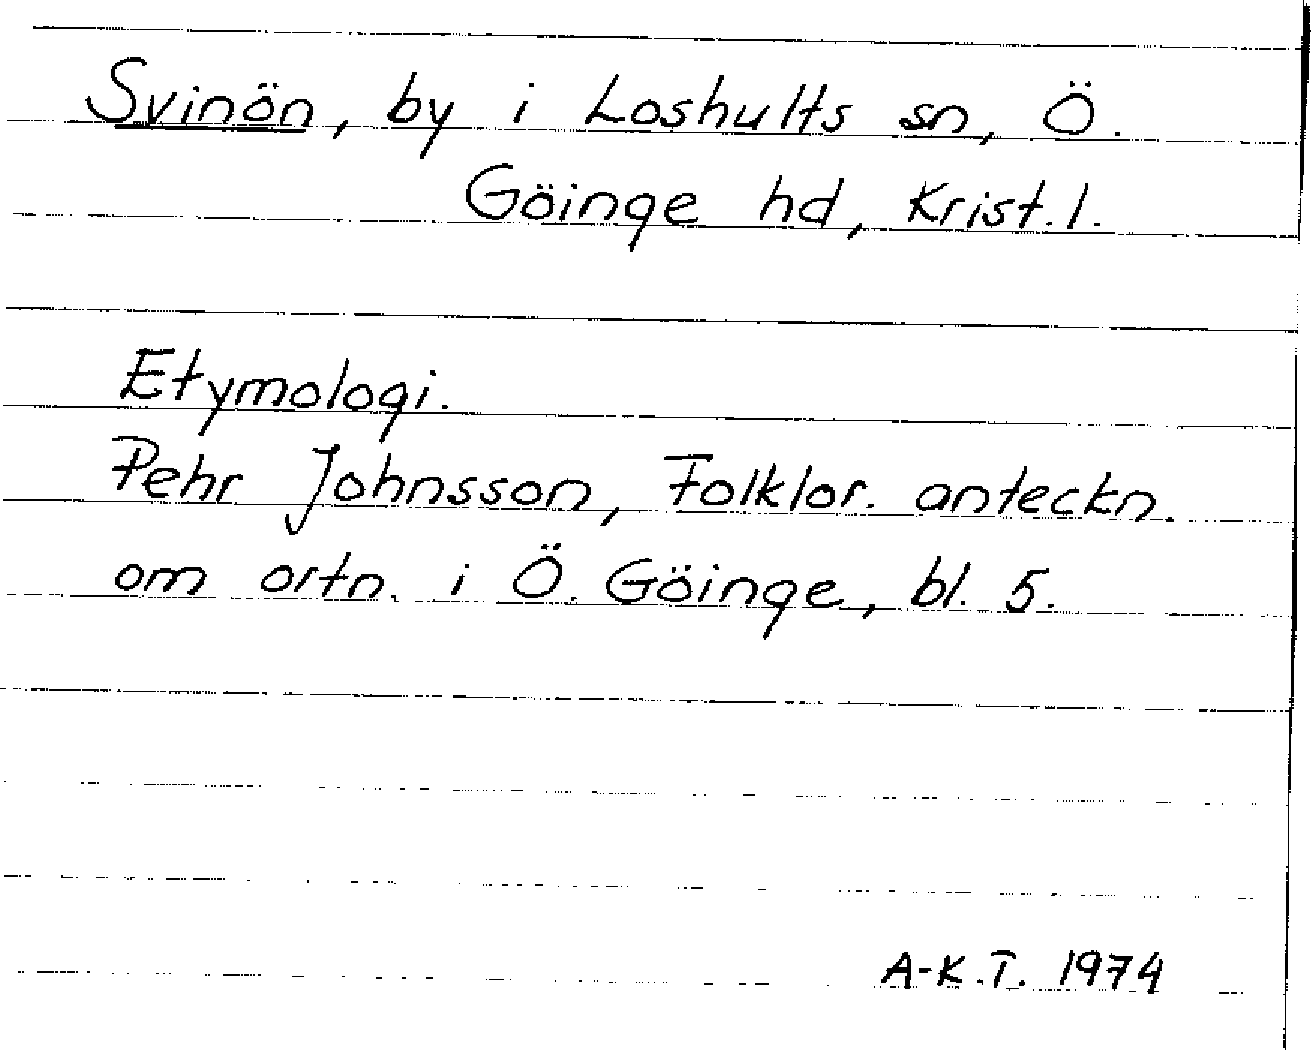 Svinön, by i Loshults sn, Ö.
Göinge hd, Krist. l.
Etymologi.
Pehr Johnsson, Folklor. anteckn.
om ortn. i Ö. Göinge, bl. 5.
A-K.T. 1974